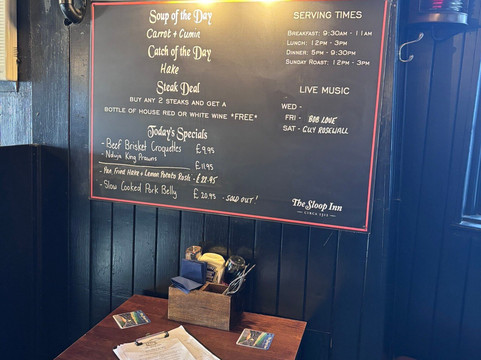 Soup of the Day
Carrot + Cumin
Catch of the Day
Hake
Steak Deal
BUY ANY 2 STEAKS AND GET A
BOTTLE OF HOUSE RED OR WHITE WINE *FREE*
Today's Specials
- Beef Brisket Croquettes £9.95
- Nduja King Prawns £11.95
- Pan Fried Hake + Lemon Potato Rosti - £22.95
- Slow Cooked Pork Belly £20.95 - SOLD OUT!
SERVING TIMES
BREAKFAST: 9:30AM - 11AM
LUNCH: 12PM - 3PM
DINNER: 5PM - 9:30PM
SUNDAY ROAST: 12PM - 3PM
LIVE MUSIC
WED -
FRI - BOB LOVE
SAT - GUY ROSEWALL
The Sloop Inn
CIRCA 1312